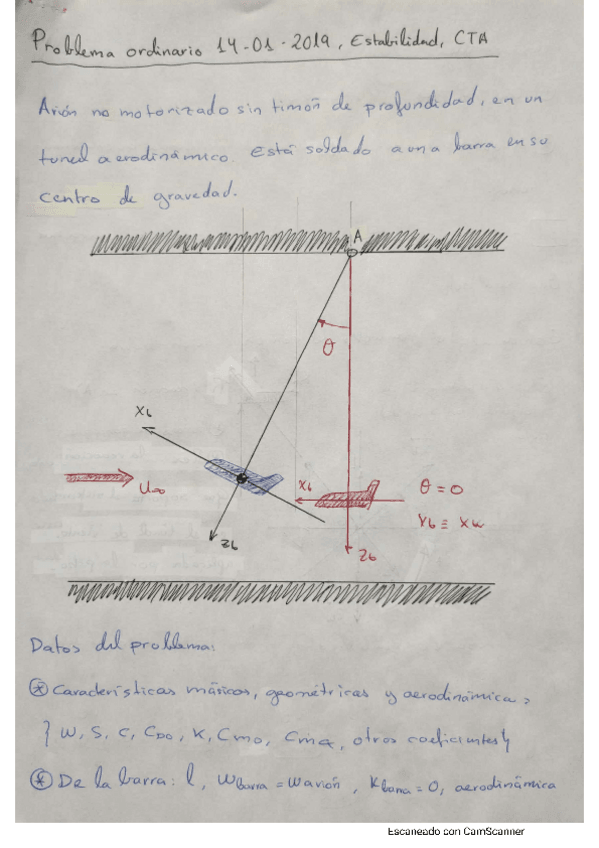 Problema ordinario 14-01-2019, Estabilidad, CTA
Avión no motorizado sin timón de profundidad, en un
tunel aerodinámico. Está soldado a una barra en su
centro de gravedad.
A
θ
Xb
U∞
Xb
θ = 0
Xb ≡ Xw
Zb
Zb
Datos del problema:
* Características másicas, geométricas y aerodinámicas
{ W, S, C, CD0, K, Cm0, Cmα, otros coeficientes }
* De la barra: l, Wbarra = Wavión, Kbarra = 0, aerodinámica
Escaneado con CamScanner